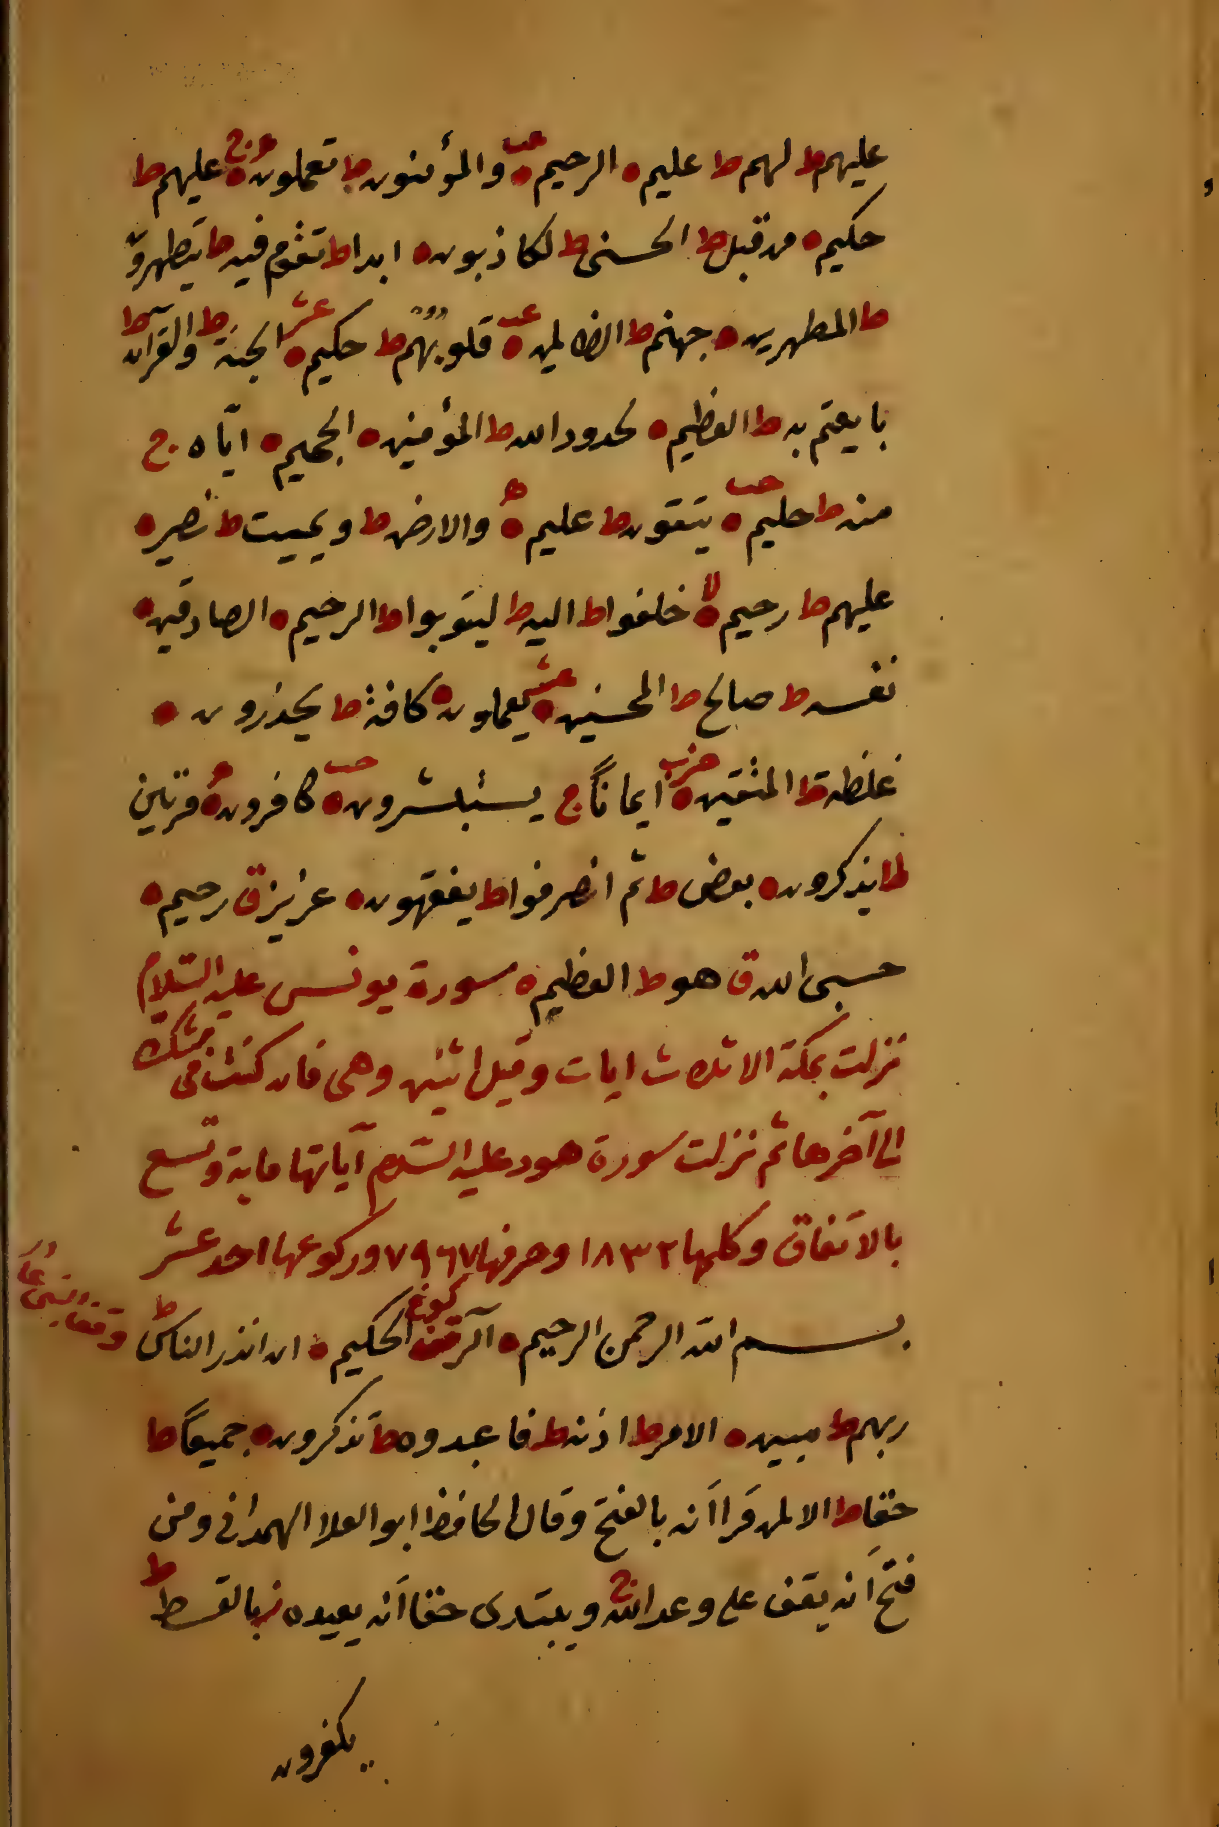 عليهم ط لهم ط عليم ه الرحيم ه عب والمؤمنون ط تعملون ه ج عليهم ط
حكيم ه من قبل ط الحسنى ط لكاذبون ه ابدا ط تقوم فيه ط يتطهروا
ط المطهرين ه جهنم ط الظالمين ه عب قلوبهم ط حكيم ه عشر الجنة ط والقرآن ط
بايعتم به ط العظيم ه لحدود الله ط المؤمنين ه الجحيم ه اياه ج
منه ط حليم ه حب يتقون ط عليم ه والارض ط ويميت ط نصير ه
عليهم ط رحيم ه لا خلفوا ط اليه ط ليتوبوا ط الرحيم ه الصادقين ه
نفسه ط صالح ط المحسنين ه عشر يعملون ه كافة ط يحذرون ه
غلظة ط المتقين ه حزب ايمانًا ج يستبشرون ه حب كافرون ه مرتين
ط يذكرون ه بعض ط ثم انصرفوا ط يفقهون ه عزيز ق رحيم ه
حسبى الله ق هو ط العظيم ه سورة يونس عليه السّلام
نزلت بمكة الا ثلاث ايات وقيل اثنين وهى فان كنت فى شك
الى آخرها ثم نزلت سورة هود عليه السّلام آياتها ماية وتسع
بالاتفاق وكلمها ١٨٣٢ وحرفها ٧٩٦٧ وركوعها احد عشر
بسم الله الرحمن الرحيم ه آلر قف كوفى الحكيم ه ان انذر الناس ط
وقف النبى
ربهم ط مبين ه الامر ط اذنه ط فاعبدوه ط تذكرون ه جميعًا ط
حقا ط الا لمن قرا اَنه بالفتح وقال الحافظ ابو العلا الهمدانى ومن
فتح اَنه يقف على وعد الله ج ويبتدى حقا اَنه يعيده ز بالقسط ط
يكفرون